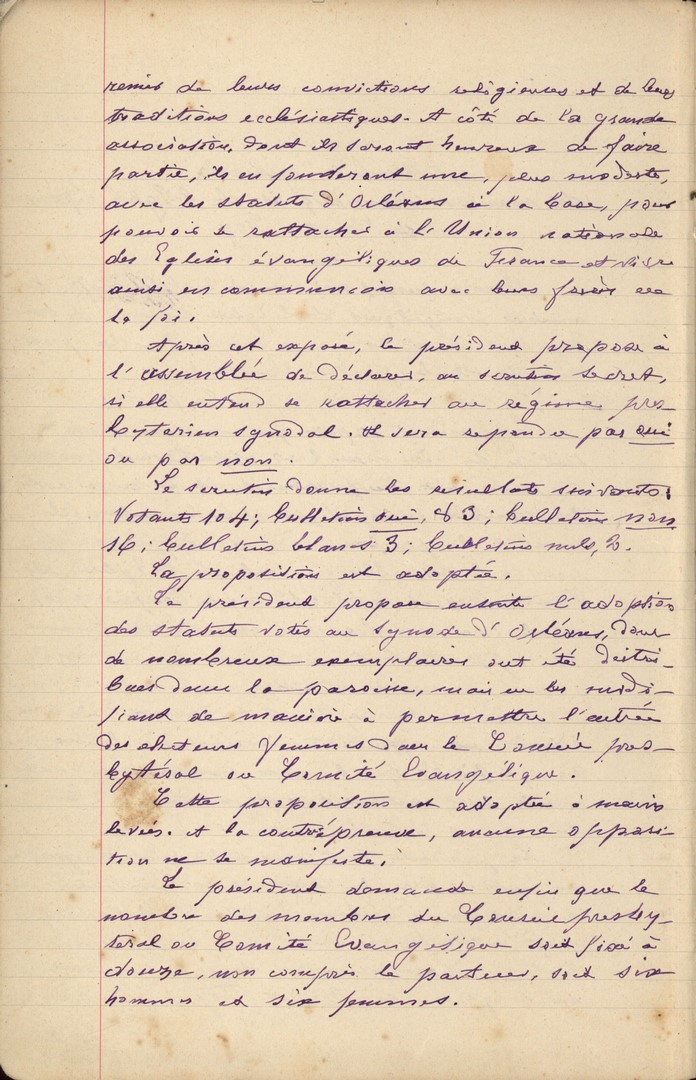 renier de leurs convictions religieuses et de leurs
traditions ecclésiastiques. A côté de la grande
association, dont ils seront heureux de faire
partie, ils en fonderont une, plus modeste,
avec les statuts d'Orléans à la base, pour
pouvoir se rattacher à l'Union nationale
des Eglises évangéliques de France et vivre
ainsi en communion avec leurs frères en
la foi.
Après cet exposé, le président propose à
l'assemblée de déclarer, au scrutin secret,
si elle entend se rattacher au régime pres-
bytérien synodal. Il sera répondu par oui
ou par non.
Le scrutin donne les résultats suivants:
Votants 104; bulletins oui, 83; bulletins non
16; bulletins blancs 3; bulletins nuls, 2.
La proposition est adoptée.
Le président propose ensuite l'adoption
des statuts votés au Synode d'Orléans, dont
de nombreux exemplaires ont été distri-
bués dans la paroisse, mais en les modi-
fiant de manière à permettre l'entrée
des électeurs femmes dans le Conseil pres-
bytéral ou Comité Evangélique.
Cette proposition est adoptée à mains
levées. A la contrépreuve, aucune opposi-
tion ne se manifeste.
Le président demande enfin que le
nombre des membres du Conseil presby-
téral ou Comité Evangélique soit fixé à
douze, non compris le pasteur, soit six
hommes et six femmes.